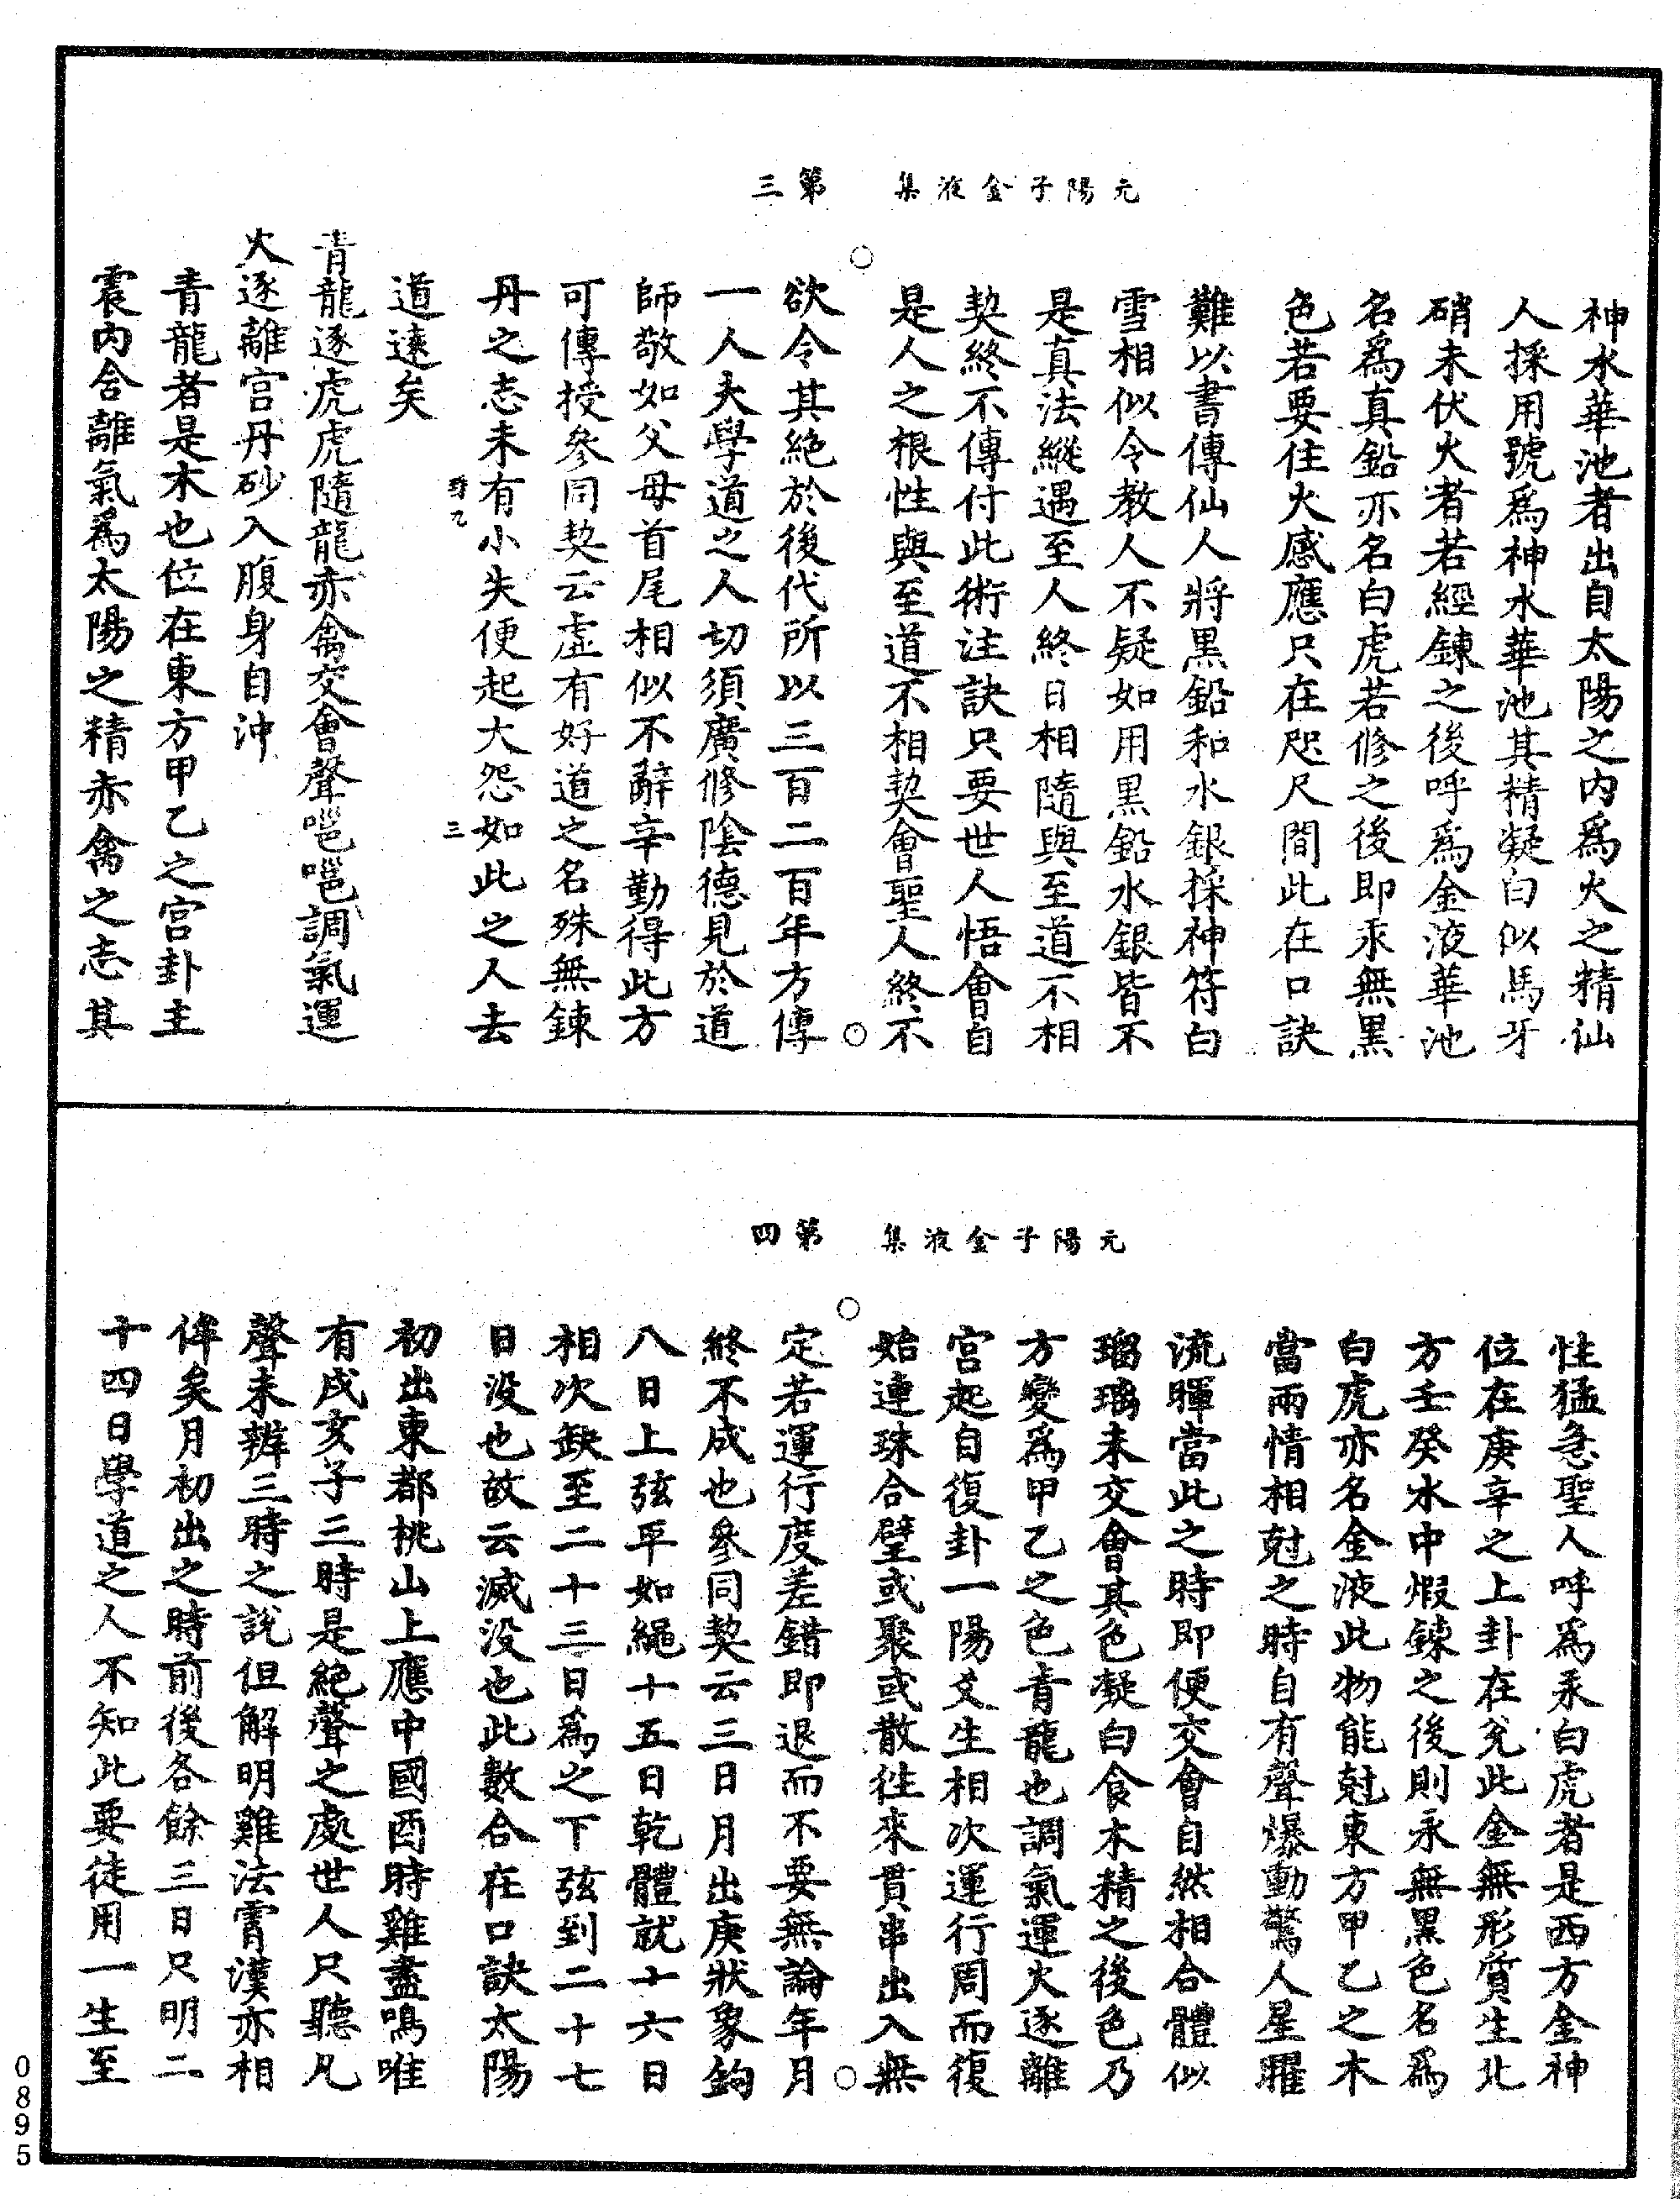 元陽子金液集　第三
神水華池者出自太陽之内爲火之精仙
人採用號爲神水華池其精凝白似馬牙
硝未伏火者若經鍊之後呼爲金液華池
名爲真鉛亦名白虎若修之後即汞無黑
色若要住火感應只在咫尺間此在口訣
難以書傳仙人將黑鉛和水銀採神符白
雪相似令教人不疑如用黑鉛水銀皆不
是真法縱遇至人終日相隨與至道不相
契終不傳付此術注訣只要世人悟會自
是人之根性與至道不相契會聖人終不
欲令其絶於後代所以三百二百年方傳
一人夫學道之人切須廣修陰德見於道
師敬如父母首尾相似不辭辛勤得此方
可傳授參同契云虛有好道之名殊無鍊
丹之志未有小失便起大怨如此之人去
道遠矣
三
青龍逐虎虎隨龍赤禽交會聲嗈嗈調氣運
火逐離宮丹砂入腹身自沖
青龍者是木也位在東方甲乙之宮卦主
震内含離氣爲太陽之精赤禽之志其
元陽子金液集　第四
性猛急聖人呼爲汞白虎者是西方金神
位在庚辛之上卦在兊此金無形質生北
方壬癸水中煆鍊之後則永無黑色名爲
白虎亦名金液此物能尅東方甲乙之木
當兩情相尅之時自有聲爆動驚人星曜
流暉當此之時即便交會自然相合體似
瑠璃未交會其色凝白食木精之後色乃
方變爲甲乙之色青龍也調氣運火逐離
宮起自復卦一陽爻生相次運行周而復
始連珠合璧或聚或散徃來貫串出入無
定若運行度差錯即退而不要無論年月
終不成也參同契云三日月出庚狀象鉤
八日上弦平如繩十五日乾體就十六日
相次缺至二十三日爲之下弦到二十七
日没也故云滅没也此數合在口訣太陽
初出東都桃山上應中國酉時雞盡鳴唯
有戌亥子三時是絶聲之處世人只聽凡
聲未辨三時之説但解明雞法霄漢亦相
侔矣月初出之時前後各餘三日只明二
十四日學道之人不知此要徒用一生至
0895